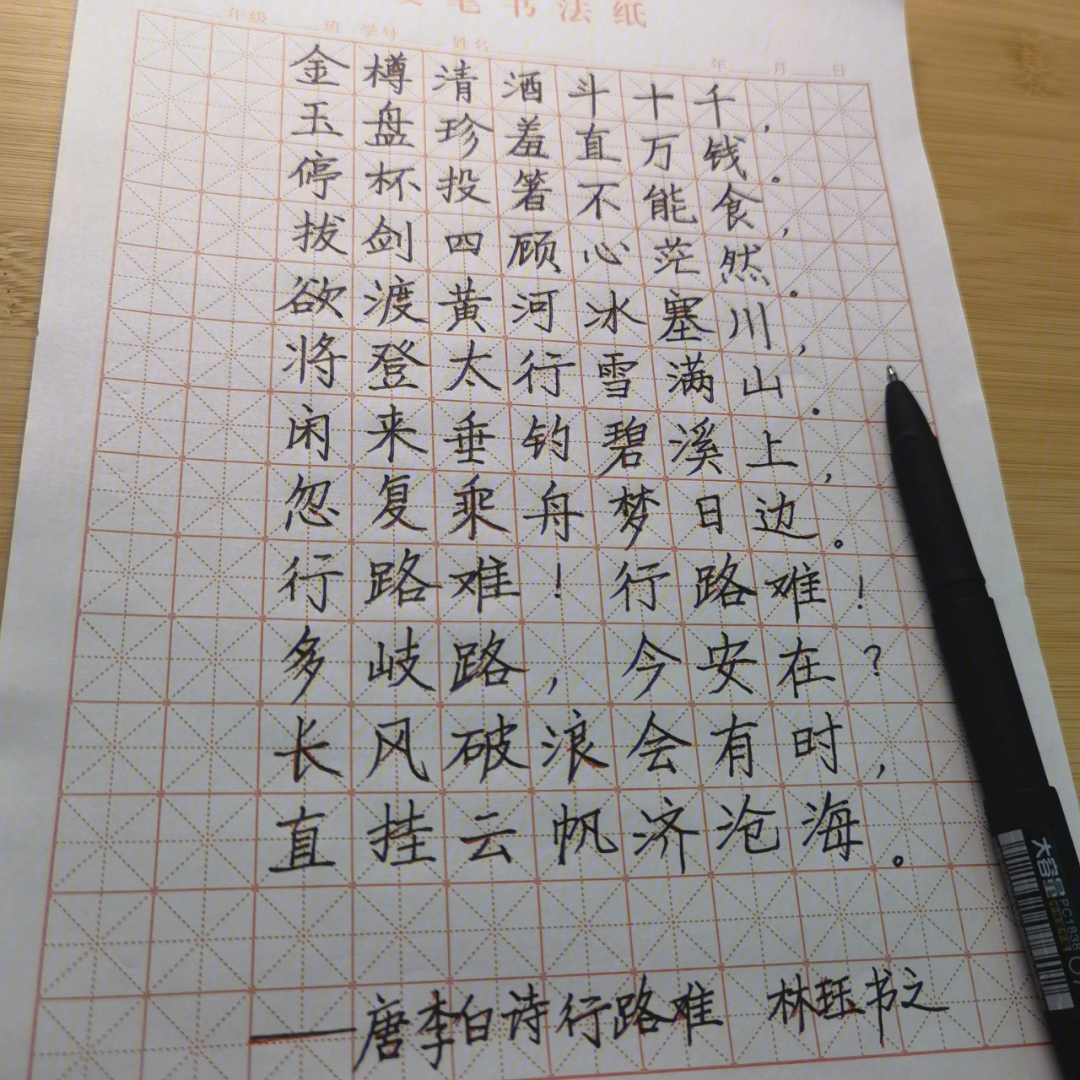 笔书法纸
年级 班 学号 姓名 年 月 日
金樽清酒斗十千，
玉盘珍羞直万钱。
停杯投箸不能食，
拔剑四顾心茫然。
欲渡黄河冰塞川，
将登太行雪满山。
闲来垂钓碧溪上，
忽复乘舟梦日边。
行路难！行路难！
多岐路，今安在？
长风破浪会有时，
直挂云帆济沧海。
——唐李白诗行路难 林珏书之
大容量